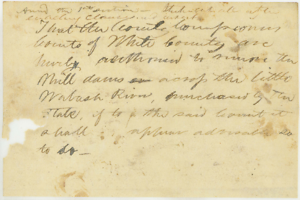 That the County Commissioners
Court of White County are
hereby authorised to remove the
Mill dams across the little
Wabash River, purchased by the
State, if to the said Court it
shall appear advisable so
to do —